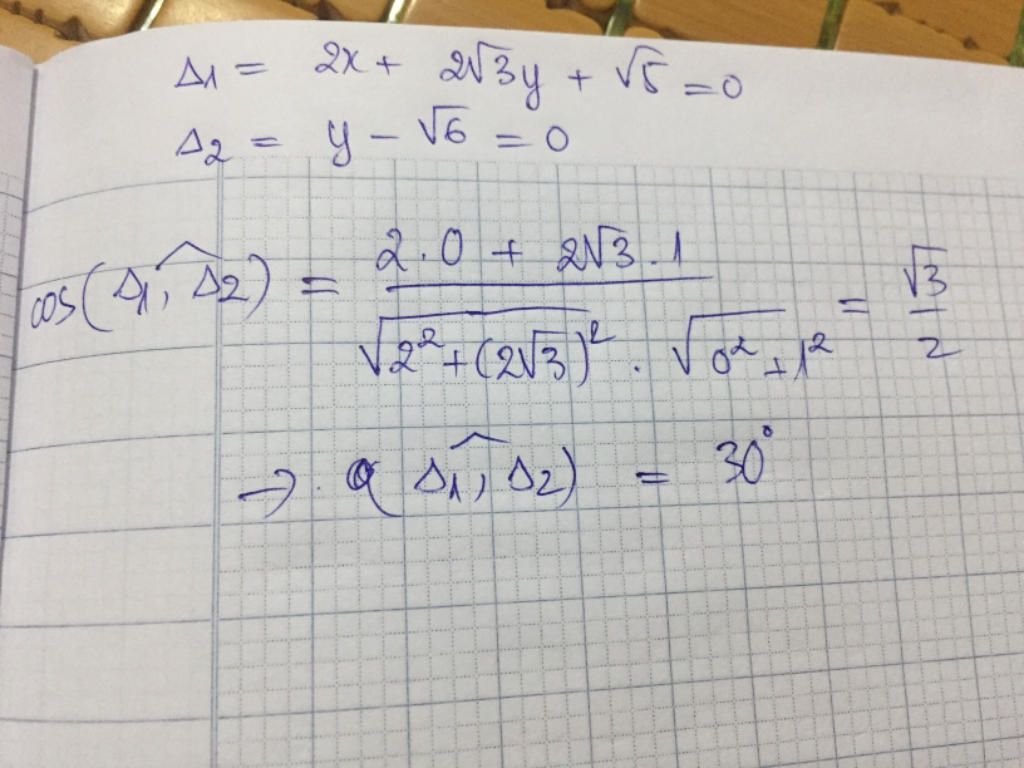 Δ1 = 2x + 2√3y + √5 = 0
Δ2 = y - √6 = 0
cos(Δ1, Δ2) = (2.0 + 2√3.1) / (√(2² + (2√3)²) . √(0² + 1²)) = √3/2
→ (Δ1, Δ2) = 30°